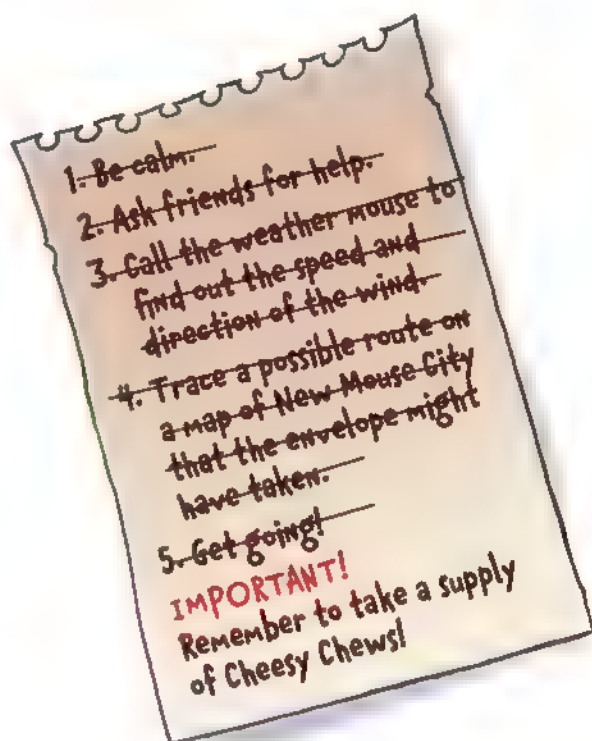 1. Be calm.
2. Ask friends for help.
3. Call the weather mouse to
find out the speed and
direction of the wind.
4. Trace a possible route on
a map of New Mouse City
that the envelope might
have taken.
5. Get going!
IMPORTANT!
Remember to take a supply
of Cheesy Chews!